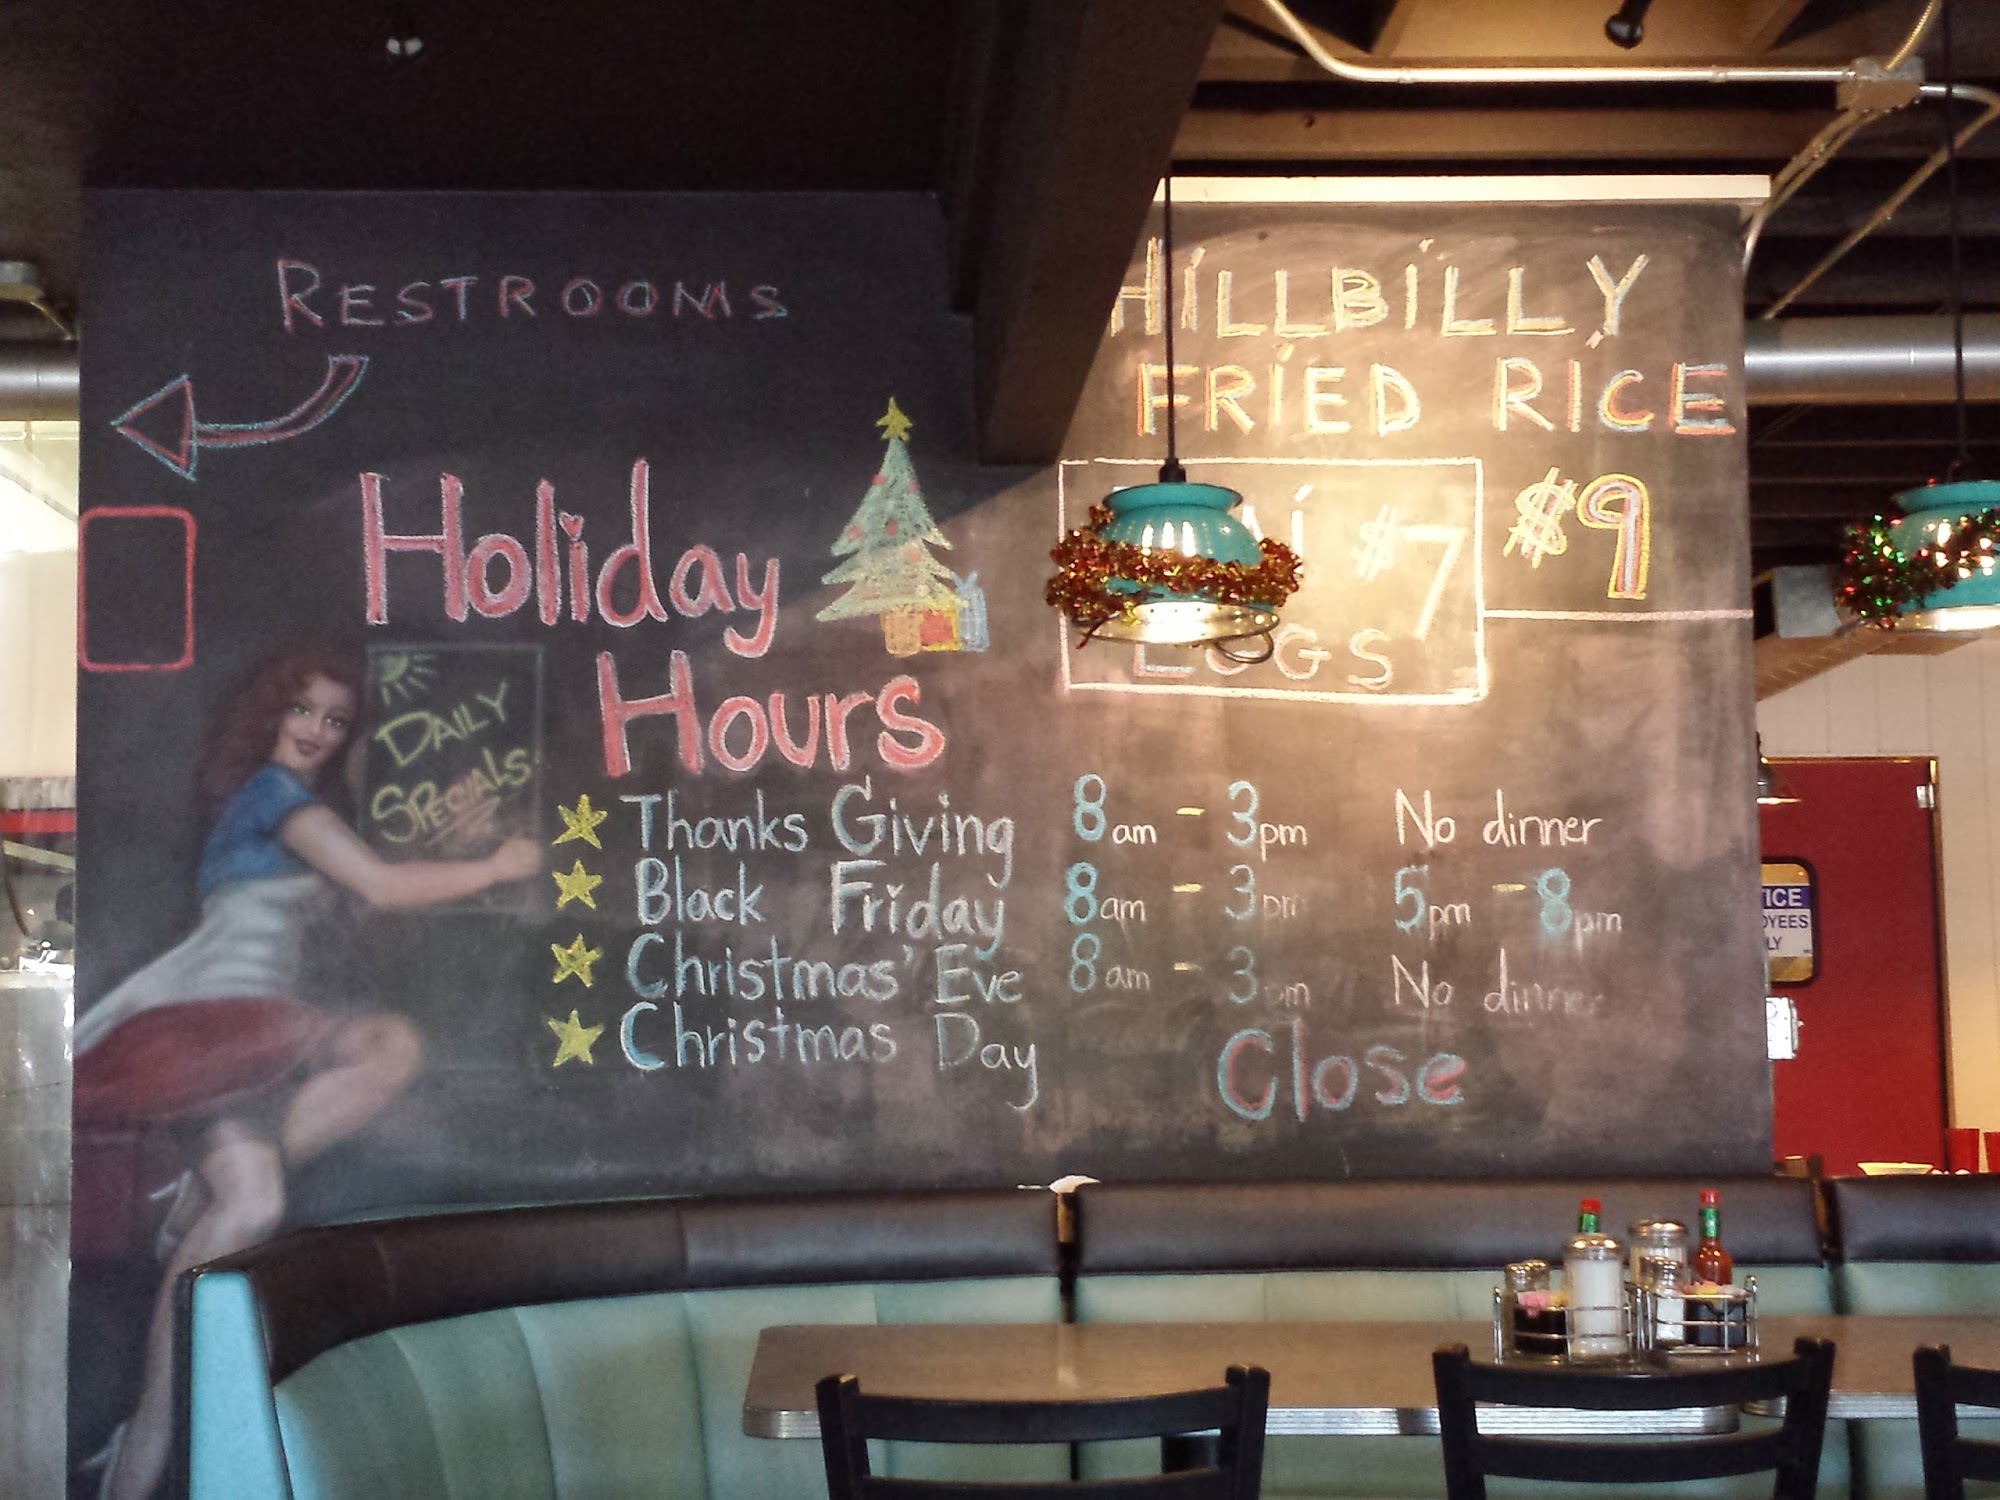 RESTROOMS
HILLBILLY
FRIED RICE
$9
$7
Holiday
Hours
DAILY
SPECIALS!
Thanks Giving 8am - 3pm No dinner
Black Friday 8am - 3pm 5pm - 8pm
Christmas' Eve 8am - 3pm No dinner
Christmas Day Close